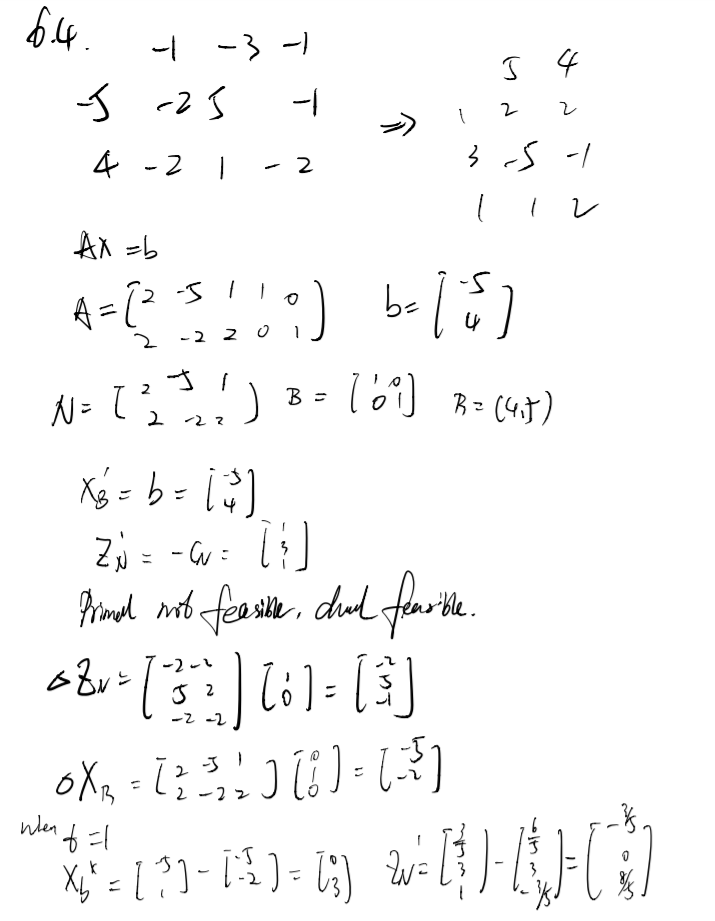 6.4.
-1 -3 -1
-5 -2 5 -1
4 -2 1 -2
⇒
5 4
1 2 2
3 -5 -1
1 1 2
AX = b
A = [2 -5 1 1 0
2 -2 2 0 1] b = [-5
4]
N = [2 -5 1
2 -2 2] B = [1 0
0 1] B = (4,5)
X'B = b = [-5
4]
Z'N = -CN = [1
3
1]
Primal not feasible, dual feasible.
ΔZN = [-2 -2
5 2
-2 -2] [1
0] = [-2
5
-1]
ΔXB = [2 -5 1
2 -2 2] [0
1
0] = [-5
-2]
when t = 1
Xb* = [-5
1] - [-5
-2] = [0
3] ZN' = [3/5
3
1] - [6/5
3
-3/5] = [-3/5
0
8/5]